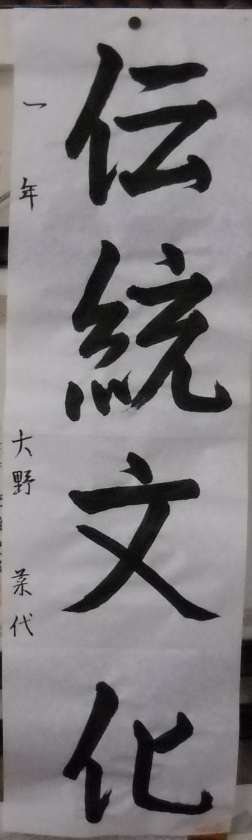 伝統文化
一年 大野 菜代